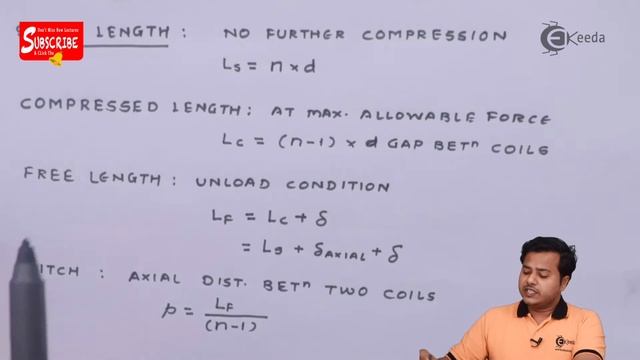 Don't Miss New Lectures
SUBSCRIBE
& Click The
LENGTH : NO FURTHER COMPRESSION
Ls = n x d
COMPRESSED LENGTH : AT MAX. ALLOWABLE FORCE
Lc = (n-1) x d GAP BETⁿ COILS
FREE LENGTH : UNLOAD CONDITION
LF = Lc + δ
= Ls + δAXIAL + δ
ITCH : AXIAL DIST. BETⁿ TWO COILS
p = LF
(n-1)
EKeeda